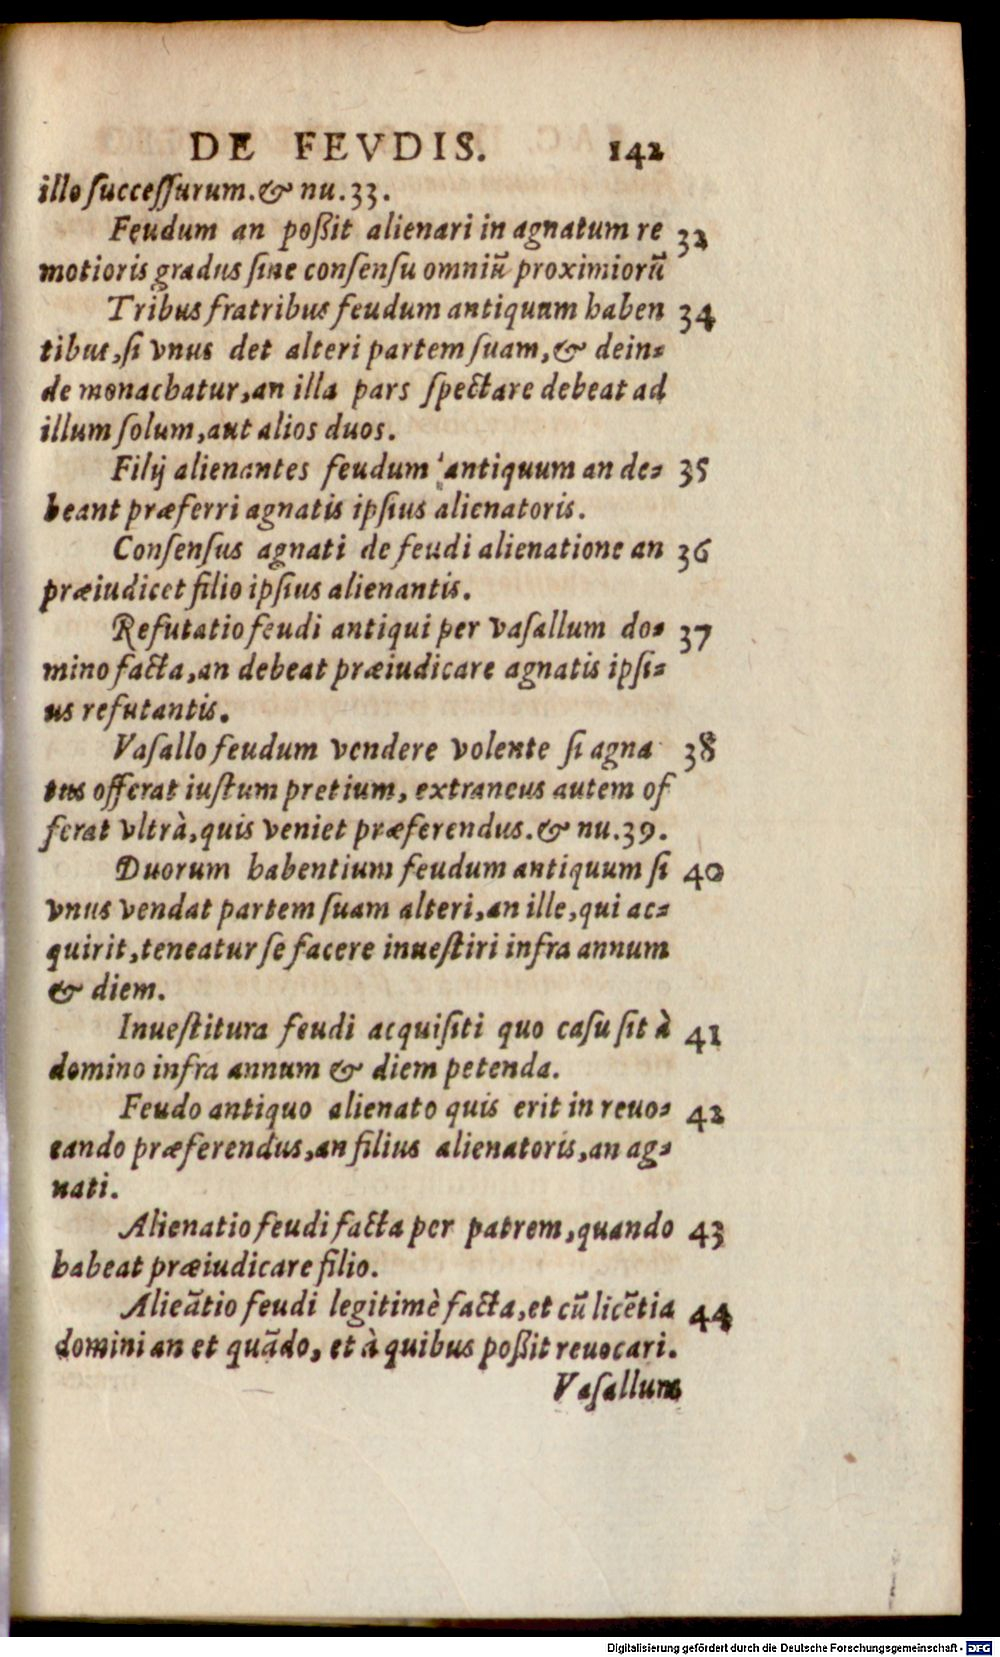 DE FEVDIS. 142
illo ſucceſſurum. & nu. 33.
Feudum an poßit alienari in agnatum re 32
motioris gradus ſine conſenſu omniũ proximiorũ
Tribus fratribus feudum antiquum haben 34
tibus, ſi vnus det alteri partem ſuam, & dein-
de monachatur, an illa pars ſpectare debeat ad
illum ſolum, aut alios duos.
Filij alienantes feudum antiquum an de- 35
beant præferri agnatis ipſius alienatoris.
Conſenſus agnati de feudi alienatione an 36
præiudicet filio ipſius alienantis.
Refutatio feudi antiqui per vaſallum do- 37
mino facta, an debeat præiudicare agnatis ipſi-
us refutantis.
Vaſallo feudum vendere volente ſi agna 38
tus offerat iuſtum pretium, extraneus autem of
ferat vltrà, quis veniet præferendus. & nu. 39.
Duorum habentium feudum antiquum ſi 40
vnus vendat partem ſuam alteri, an ille, qui ac-
quirit, teneatur ſe facere inueſtiri infra annum
& diem.
Inueſtitura feudi acquiſiti quo caſu ſit à 41
domino infra annum & diem petenda.
Feudo antiquo alienato quis erit in reuo- 42
cando præferendus, an filius alienatoris, an ag-
nati.
Alienatio feudi facta per patrem, quando 43
habeat præiudicare filio.
Alieãtio feudi legitimè facta, et cũ licẽtia 44
domini an et quãdo, et à quibus poßit reuocari.
Vaſallum
Digitalisierung gefördert durch die Deutsche Forschungsgemeinschaft - DFG